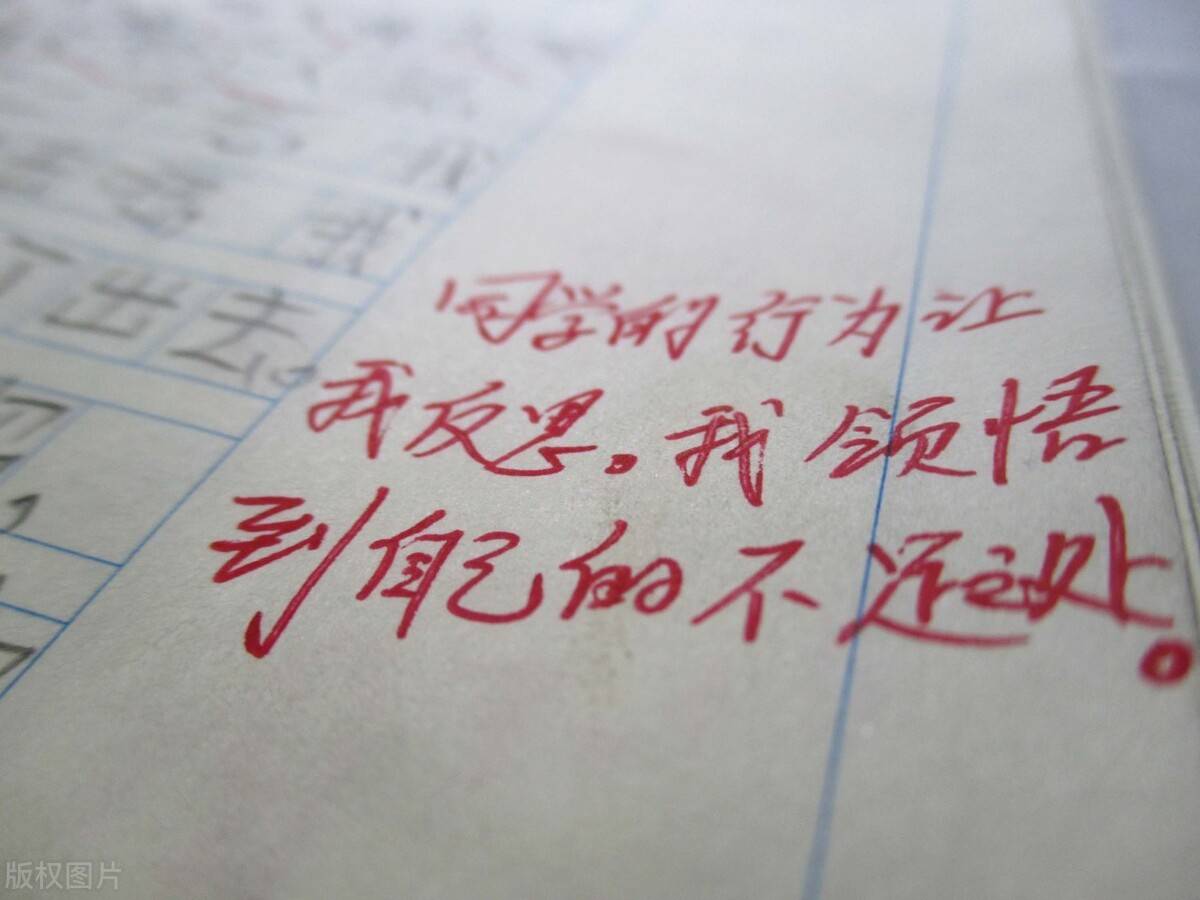 我
我
出去
同学的行为让
我反思。我领悟
到自己的不足之处。
版权图片